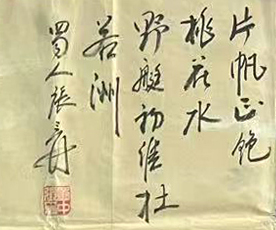 片帆正飽
桃花水
野艇初維杜
若洲
蜀人張爰